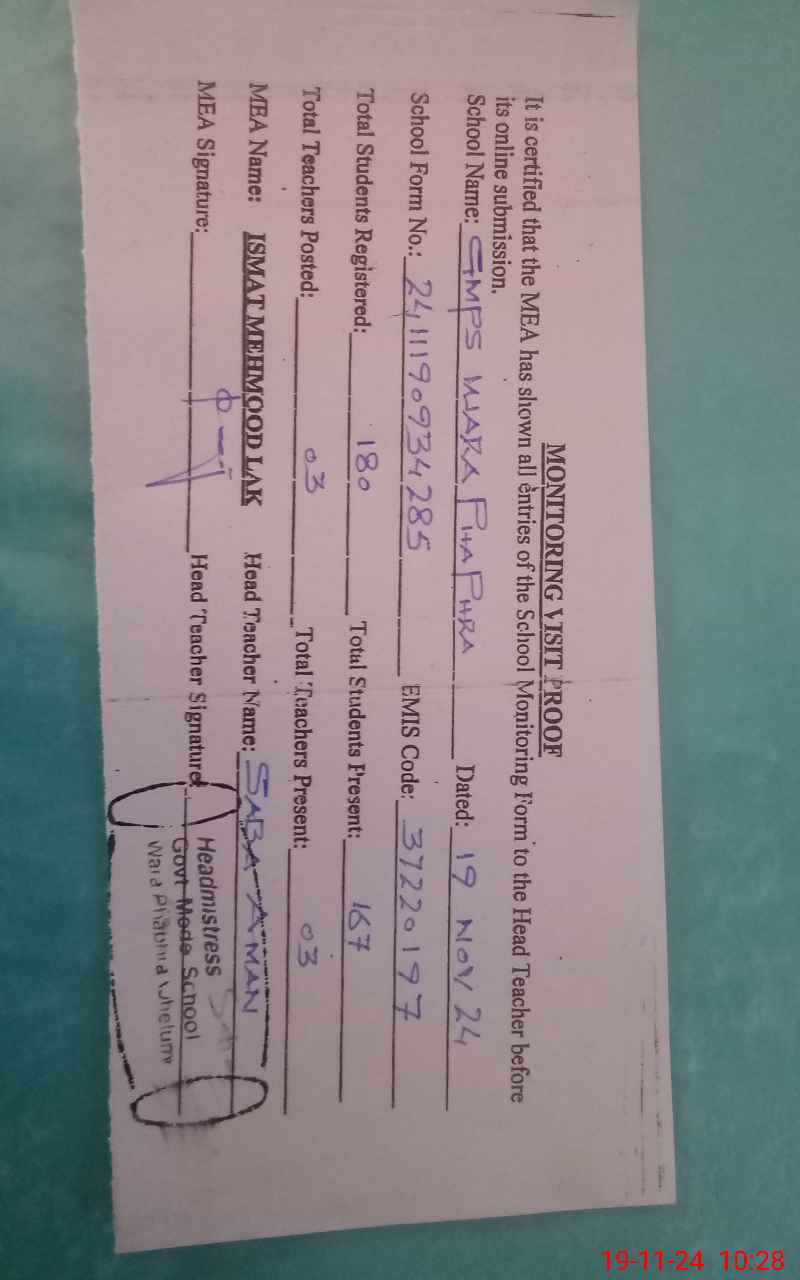 MONITORING VISIT PROOF
It is certified that the MEA has shown all entries of the School Monitoring Form to the Head Teacher before
its online submission.
School Name: GMPS WARA PHAPHRA Dated: 19 NOV 24
School Form No.: 2411190934285 EMIS Code: 37220197
Total Students Registered: 180 Total Students Present: 167
Total Teachers Posted: 03 Total Teachers Present: 03
MEA Name: ISMAT MEHMOOD LAK Head Teacher Name: SABA AMAN
MEA Signature: Head Teacher Signature:
Headmistress
Govt Mode School
Wara Phaphra Jhelum
19-11-24 10:28